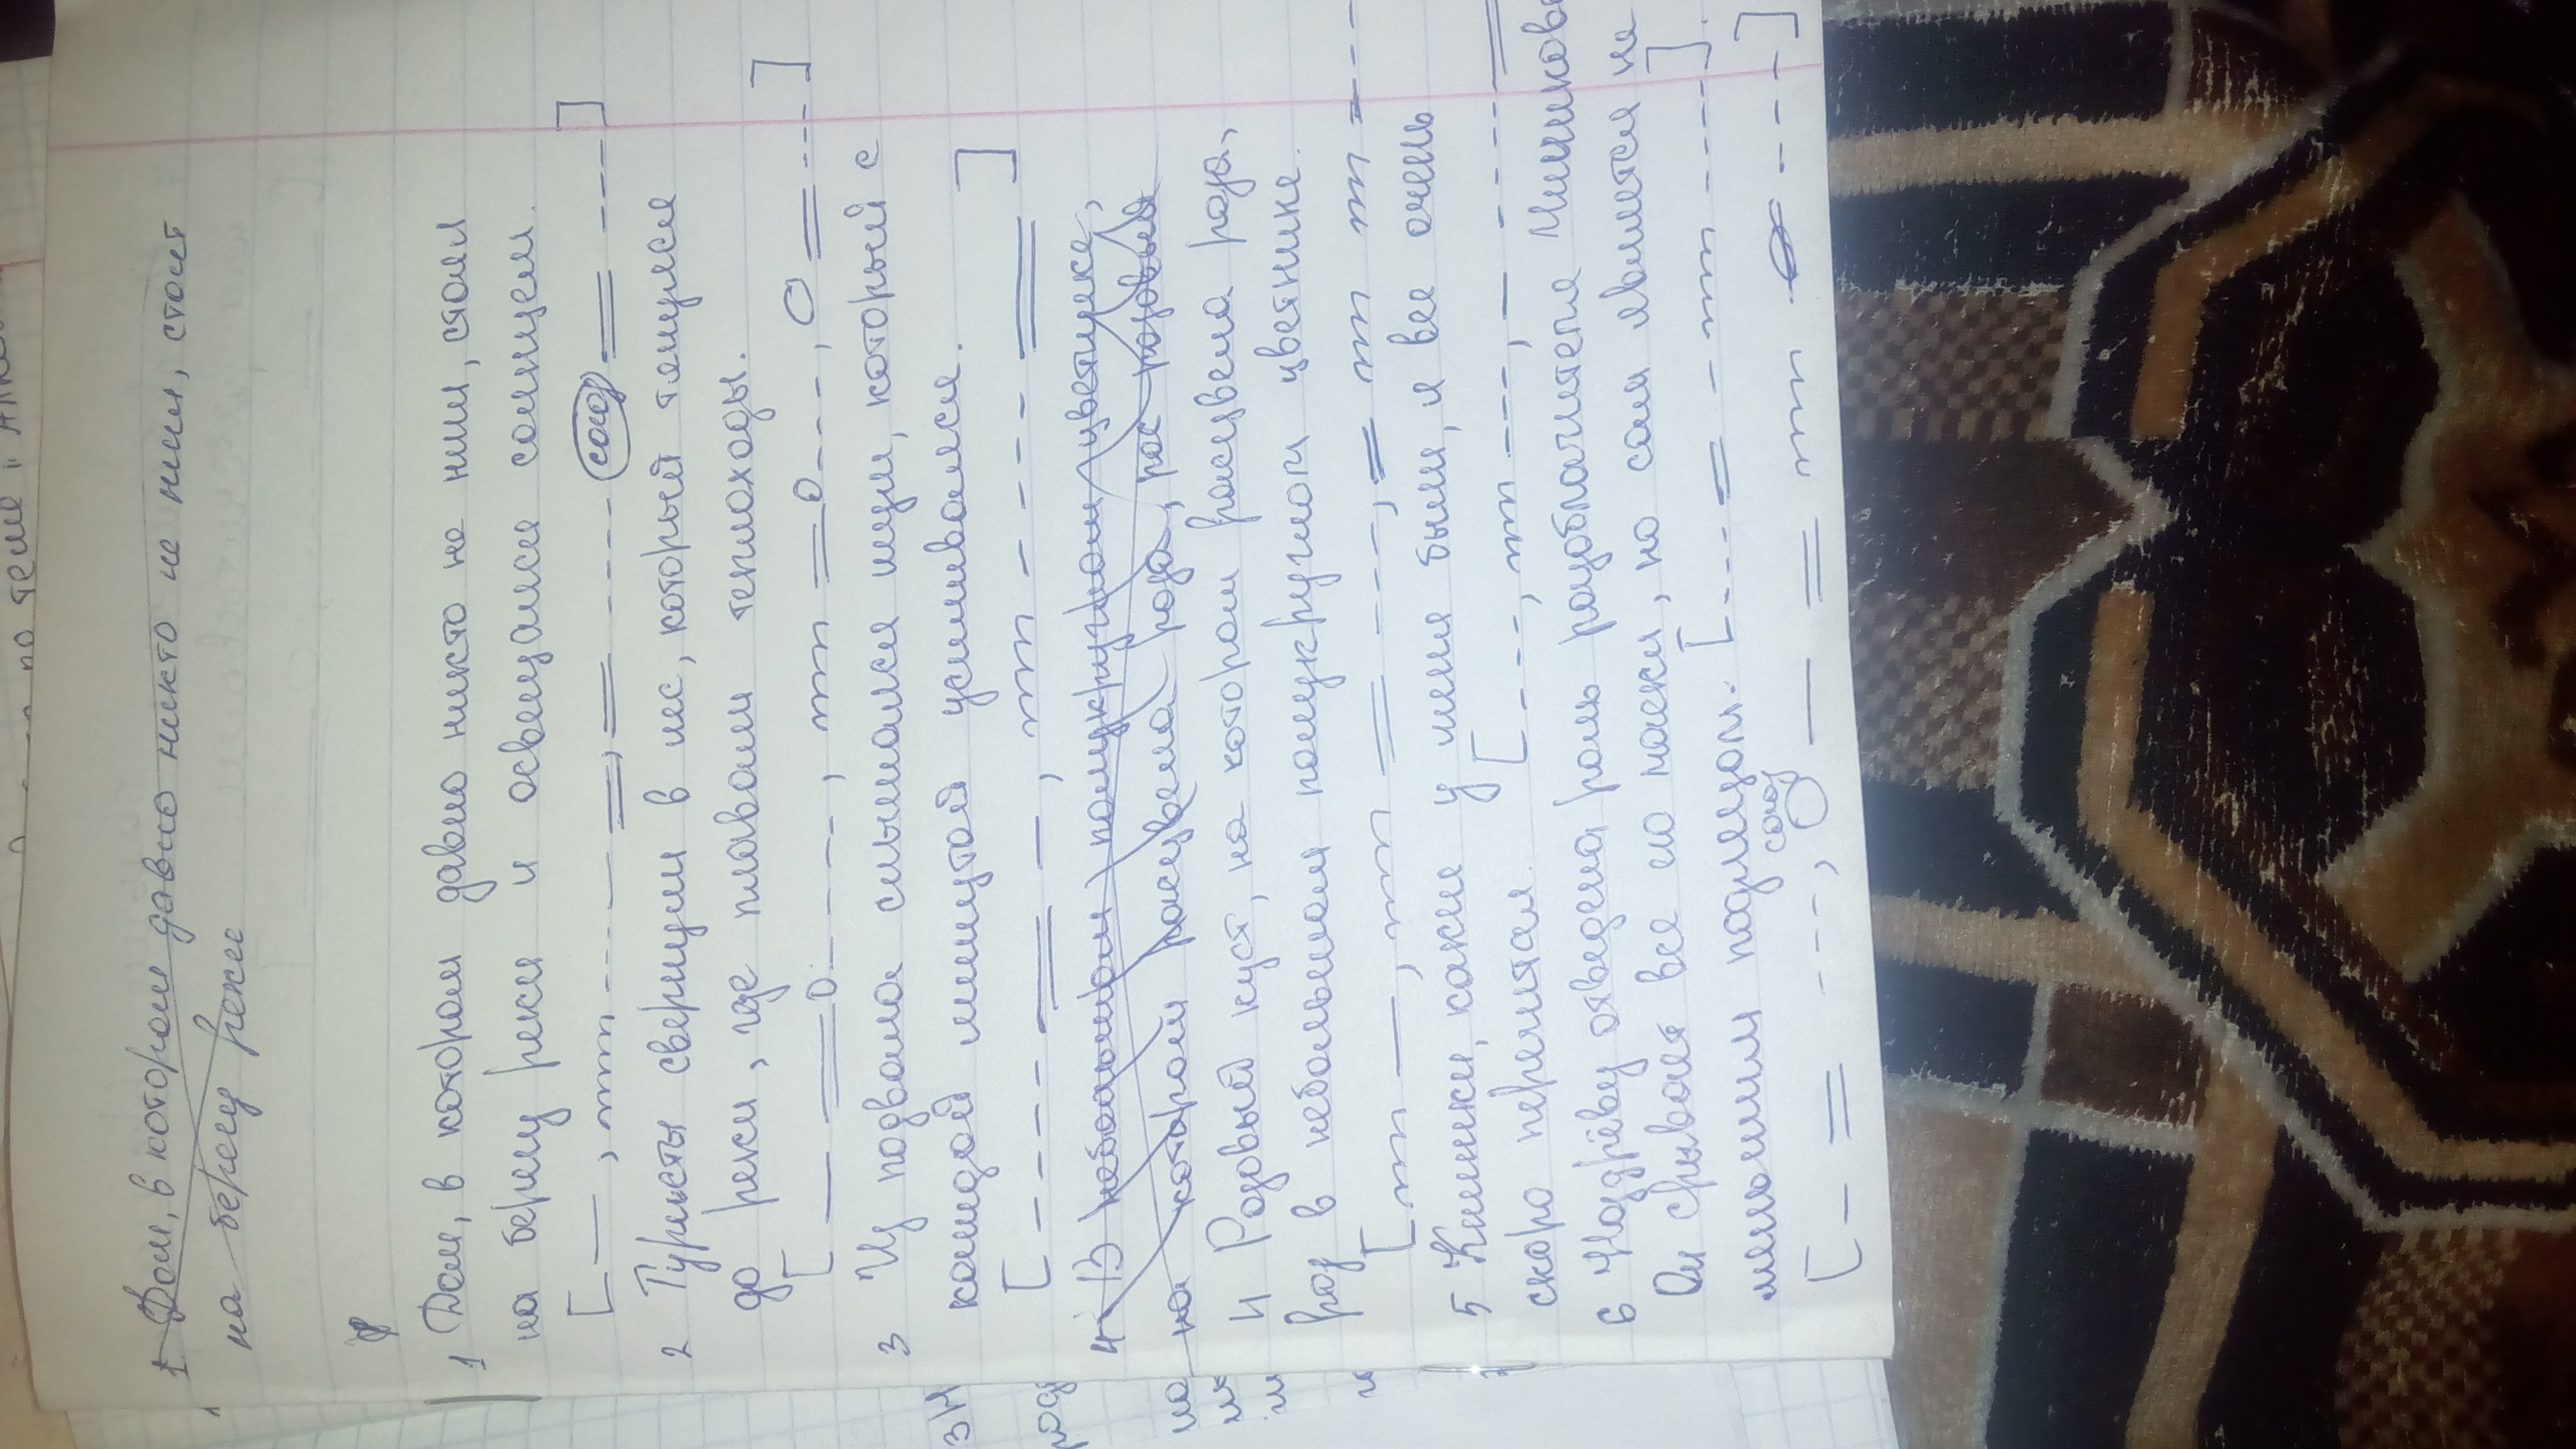 1 Дом, в котором давно никто не жил, стоит
на берегу реки
1 Дом, в котором давно никто не жил, стоял
на берегу реки и освещался солнцем.
союз
2 Туристы свернули в лес, который тянулся
до реки, где плавали теплоходы.
3 Из подвала слышался шум, который с
каждой минутой усиливался.
4 В небольшом полукруглом цветнике,
на котором расцвела роза, рос розовый
4 Розовый куст, на котором расцвела роза,
рос в небольшом полукруглом цветнике.
5 Книжки, какие у меня были, я все очень
скоро перечитал.
6 Ноздрёву отведена роль разоблачителя
Он срывает все маски, но сам является не
меньшим подлецом.
союз